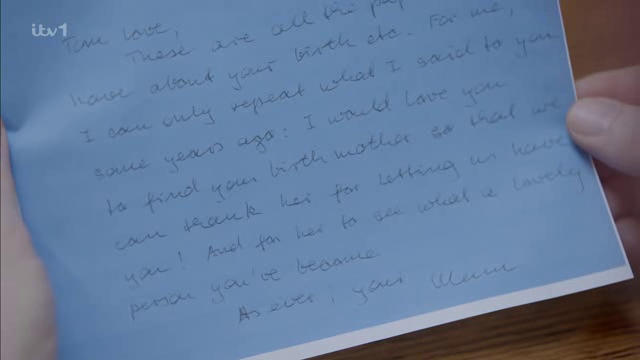 itv1
Tom love,
These are all the pap
have about your birth etc. For me,
I can only repeat what I said to you
some years ago: I would love you
to find your birthmother so that we
can thank her for letting us have
you! And for her to see what a lovely
person you've become
As ever, your Mum